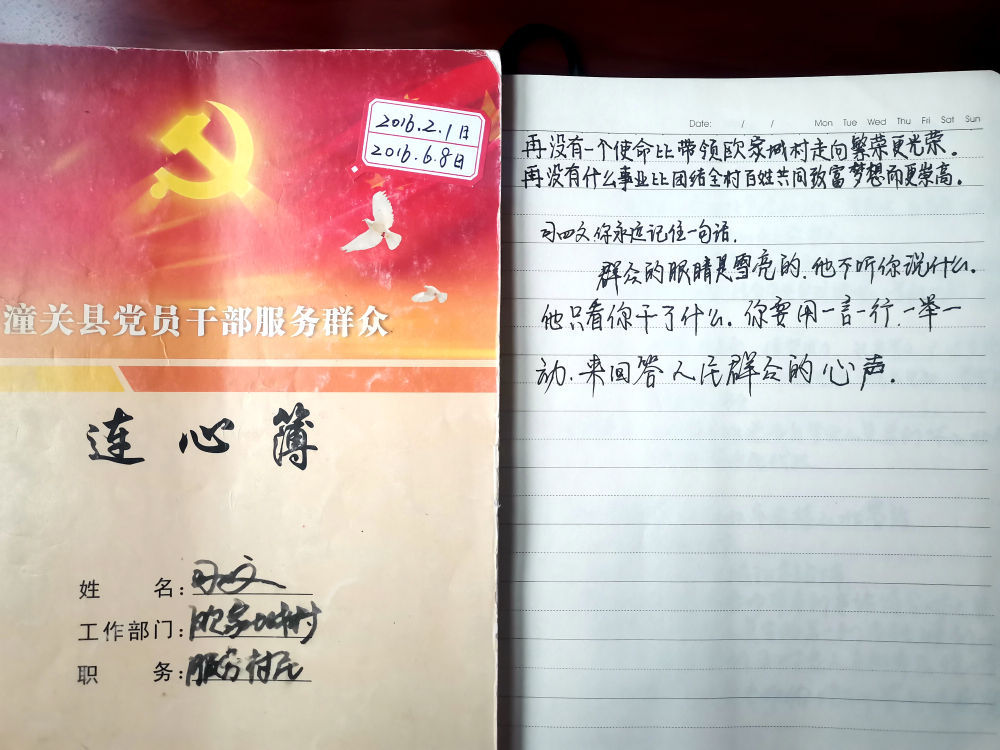 2016.2.1日
2016.6.8日
潼关县党员干部服务群众
连心簿
姓 名:习四文
工作部门:欧家城村
职 务:服务村民
Date: / / Mon Tue Wed Thu Fri Sat Sun
再没有一个使命比带领欧家城村走向繁荣更光荣。
再没有什么事业比团结全村百姓共同致富梦想而更崇高。
习四文你永远记住一句话,
群众的眼睛是雪亮的.他不听你说什么.
他只看你干了什么.你要用一言一行.一举一
动.来回答人民群众的心声.